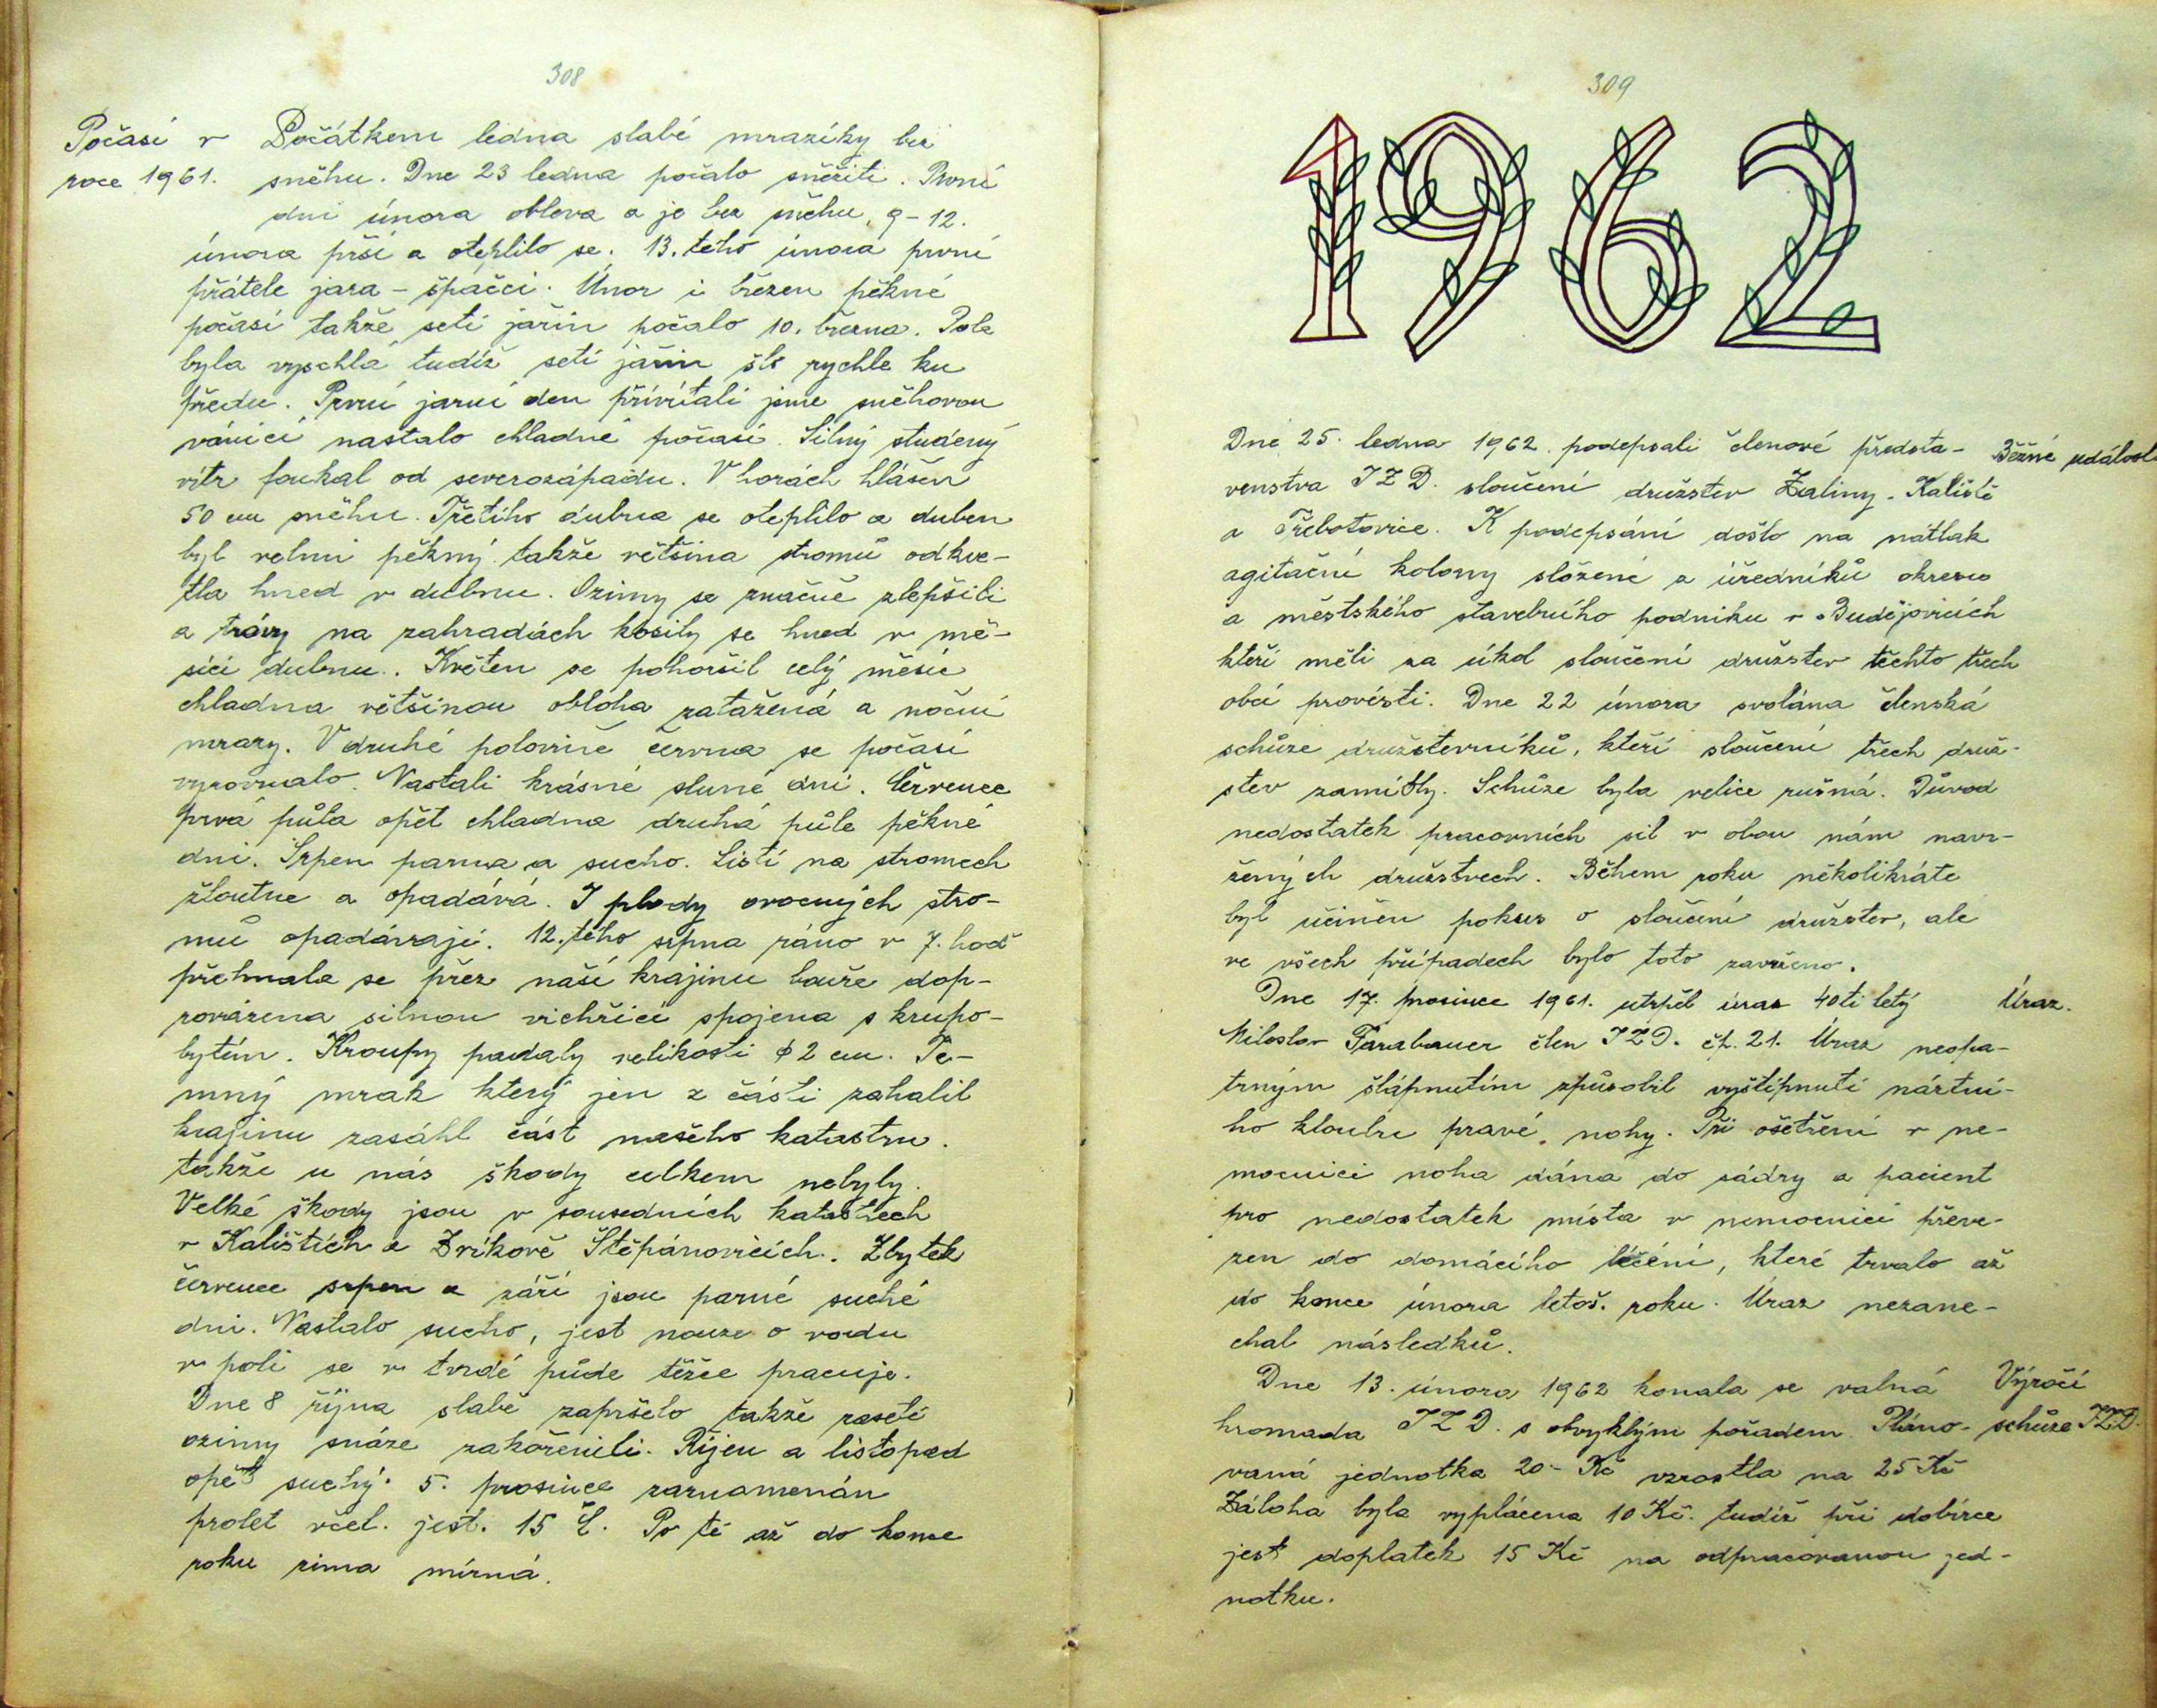 308
Počasí v
roce 1961.
Počátkem ledna slabé mrazíky bez
sněhu. Dne 23 ledna počalo sněžiti. První
dni února obleva a je bez sněhu, 9-12.
února prší a oteplilo se. 13. tého února první
přátele jara - špačci. Únor i březen pěkné
počasí takže setí jařin počalo 10. března. Pole
byla vyschlá tudíž setí jařin šlo rychle ku
předu. První jarní den přivítali jsme sněhovou
vánicí nastalo chladné počasí. Silný studený
vítr foukal od severozápadu. V horách hlášen
50 cm sněhu. Třetího dubna se oteplilo a duben
byl velmi pěkný takže většina stromů odkve-
tla hned v dubnu. Ozimy se značně zlepšili
a trávy na zahradách kosily se hned v mě-
síci dubnu. Květen se pohoršil celý měsíc
chladna většinou obloha zatažená a noční
mrazy. V druhé polovině června se počasí
vyrovnalo. Nastali krásné sluné dni. Července
prvá půla opět chladna druhá půle pěkné
dni. Srpen parna a sucho. Listí na stromech
žloutne a opadává. I plody ovocných stro-
mů opadávají. 12. tého srpna ráno v 7. hod
přehnala se přez naší krajinu bouře dop-
rovázena silnou vichřicí spojena s krupo-
bytím. Kroupy padaly velikosti ϕ 2 cm. Te-
mný mrak který jen z části zahalil
krajinu zasáhl část našeho katastru.
takže u nás škody celkem nebyly.
Velké škody jsou v sousedních katastrech
v Kalištích a Zvíkově Štěpánovicích. Zbytek
července srpen a září jsou parné suché
dni. Nastalo sucho, jest nouze o vodu
v poli se v tvrdé půde těžce pracuje.
Dne 8 října slabě zapršelo takže zaseté
ozimy snáze zakořenili. Říjen a listopad
opět suchý. 5. prosince zaznamenán
prolet včel. jest. 15 C. Po té až do konce
roku zima mírná.
309
1962
Dne 25. ledna 1962. podepsali členové předsta-
Běžné událost
venstva JZD. sloučení družstev Zaliny. Kaliště
a Třebotovice. K podepsání došlo na nátlak
agitační kolony složené z úředníků okresu
a městského stavebního podniku v Budějovicích
kteří měli za úkol sloučení družstev těchto třech
obcí provésti. Dne 22 února svolána členská
schůze družsterníků, kteří sloučení třech druž-
stev zamítly. Schůze byla velice rušná. Důvod
nedostatek pracovních sil v obou nám navr-
žených družstvech. Během roku několikráte
byl učiněn pokus o sloučení družstev, ale
ve všech případech bylo toto zavrženo.
Dne 17. prosince 1961. utrpěl úraz 40ti letý
Úraz.
Miloslav Farabauer člen JZD. čp. 21. Úraz neopa-
trným šlápnutím způsobil vyštípnutí nártní-
ho kloubu pravé nohy. Při ošetření v ne-
mocnici noha dána do sádry a pacient
pro nedostatek místa v nemocnici převe-
zen do domácího léčéní, které trvalo až
do konce února letoš. roku. Úraz nezane-
chal následků.
Dne 13. února 1962 konala se valná
Výročí
hromada JZD. s obvyklým pořadem. Pláno-
schůze JZD.
vaná jednotka 20- Kč vzrostla na 25 Kč
Záloha byla vyplácena 10 Kč. tudíž při dobírce
jest doplatek 15 Kč na odpracovanou jed-
notku.